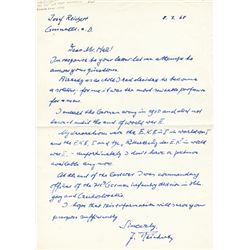 Josef Reichert
8. 7. 68
Dear Mr. Hall!
In response to your letter let me attempt to
answer your questions.
Already as a child I had decided to become
a soldier, for me it was the most valuable profession
for a man.
I entered the German army in 1910 and did not
leave it until the end of world war II.
My decorations were the E.K. II + I in world war I
and the E.K. II, I and Kn., Ritterkreuz des E.K. in world
war II - unfortunately I don't have a picture
available any more.
At the end of the war I was commanding
officer of the 711 German infantry division in Hun-
gary and Czechoslovakia.
I hope that this information will serve your
purposes sufficiently.
Sincerely
J. Reichert